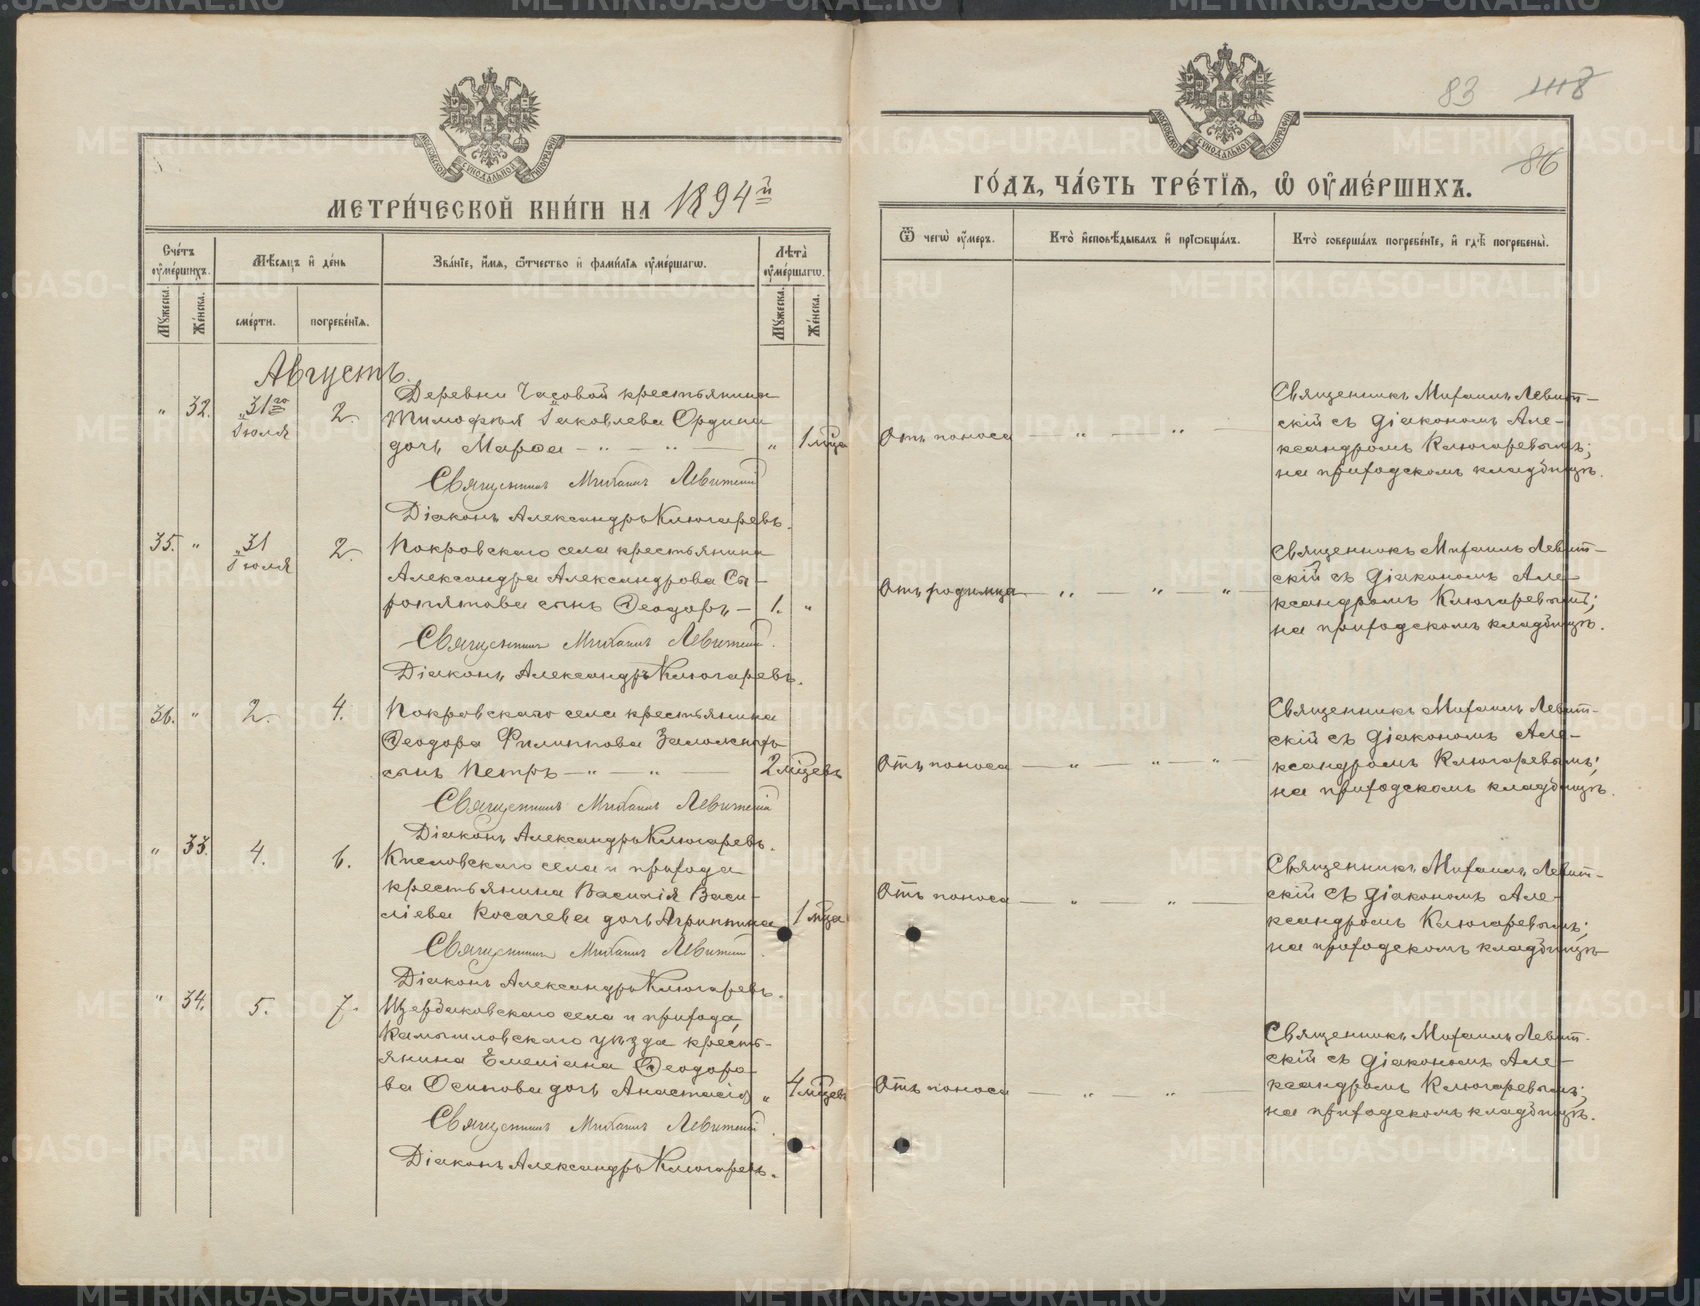 83 118
86
МОСКОВСКОЙ СУНОДАЛЬНОЙ ТИПОГРАФІИ
МЕТРИ́ЧЕСКОЙ КНИ́ГИ НА 1894й
Сче́тъ ᲂу҆ме́ршихъ.
Мꙋ́жеска.
Же́нска.
Мѣ́сѧцъ и҆ де́нь
сме́рти.
погребе́нїѧ.
Зва́нїе, и҆́мѧ, ѻ҆́тчество и҆ фамилїѧ ᲂу҆ме́ршагѡ.
Лѣ̑та ᲂу҆ме́ршагѡ.
Мꙋ́жеска.
Же́нска.
Августъ.
" 32. 31го Іюля 2.
Деревни Часовой крестьянина
Тимофея Іаковлева Ордина
дочь Марѳа — " — " — " 1 мца
Священникъ Михаилъ Левитскій
Діаконъ Александръ Ключаревъ.
35. " 31 Іюля 2.
Покровскаго села крестьянина
Александра Александрова Сы-
ропятова сынъ Ѳеодоръ — 1. "
Священникъ Михаилъ Левитскій.
Діаконъ Александръ Ключаревъ.
36. " 2. 4.
Покровскаго села крестьянина
Ѳеодора Филиппова Заложныхъ
сынъ Петръ — " — " — 2 мцевъ
Священникъ Михаилъ Левитскій
Діаконъ Александръ Ключаревъ.
" 33. 4. 6.
Кисловскаго села и прихода
крестьянина Василія Васи-
ліева Косачева дочь Агриппина 1 мца
Священникъ Михаилъ Левитскій.
Діаконъ Александръ Ключаревъ.
" 34. 5. 7.
Щербаковскаго села и прихода,
Камышловскаго уѣзда кресть-
янина Емеліана Ѳеодоро-
ва Осипова дочь Анастасія " 4 мцевъ
Священникъ Михаилъ Левитскій.
Діаконъ Александръ Ключаревъ.
МОСКОВСКОЙ СУНОДАЛЬНОЙ ТИПОГРАФІИ
ГО́ДЪ, ЧА́СТЬ ТРЕ́ТЇѦ, Ѡ҆ ОУ҆МЕ́РШИХЪ.
Ѿ чегѡ̀ ᲂу҆́меръ.
Кто̀ и҆сповѣ́дывалъ и҆ прїѡбща́лъ.
Кто̀ соверша́лъ погребе́нїе, и҆ гдѣ̀ погребены̀.
Отъ поноса — " — " —
Священникъ Михаилъ Левит-
скій съ діакономъ Але-
ксандромъ Ключаревымъ;
на приходскомъ кладбищѣ.
Отъ родимца — " — " — " —
Священникъ Михаилъ Левит-
скій съ діакономъ Але-
ксандромъ Ключаревымъ;
на приходскомъ кладбищѣ.
Отъ поноса — " — " — " —
Священникъ Михаилъ Левит-
скій съ діакономъ Але-
ксандромъ Ключаревымъ;
на приходскомъ кладбищѣ.
Отъ поноса — " — " —
Священникъ Михаилъ Левит-
скій съ діакономъ Але-
ксандромъ Ключаревымъ;
на приходскомъ кладбищѣ
Отъ поноса — " — " —
Священникъ Михаилъ Левит-
скій съ діакономъ Але-
ксандромъ Ключаревымъ;
на приходскомъ кладбищѣ.
METRIKI.GASO-URAL.RU